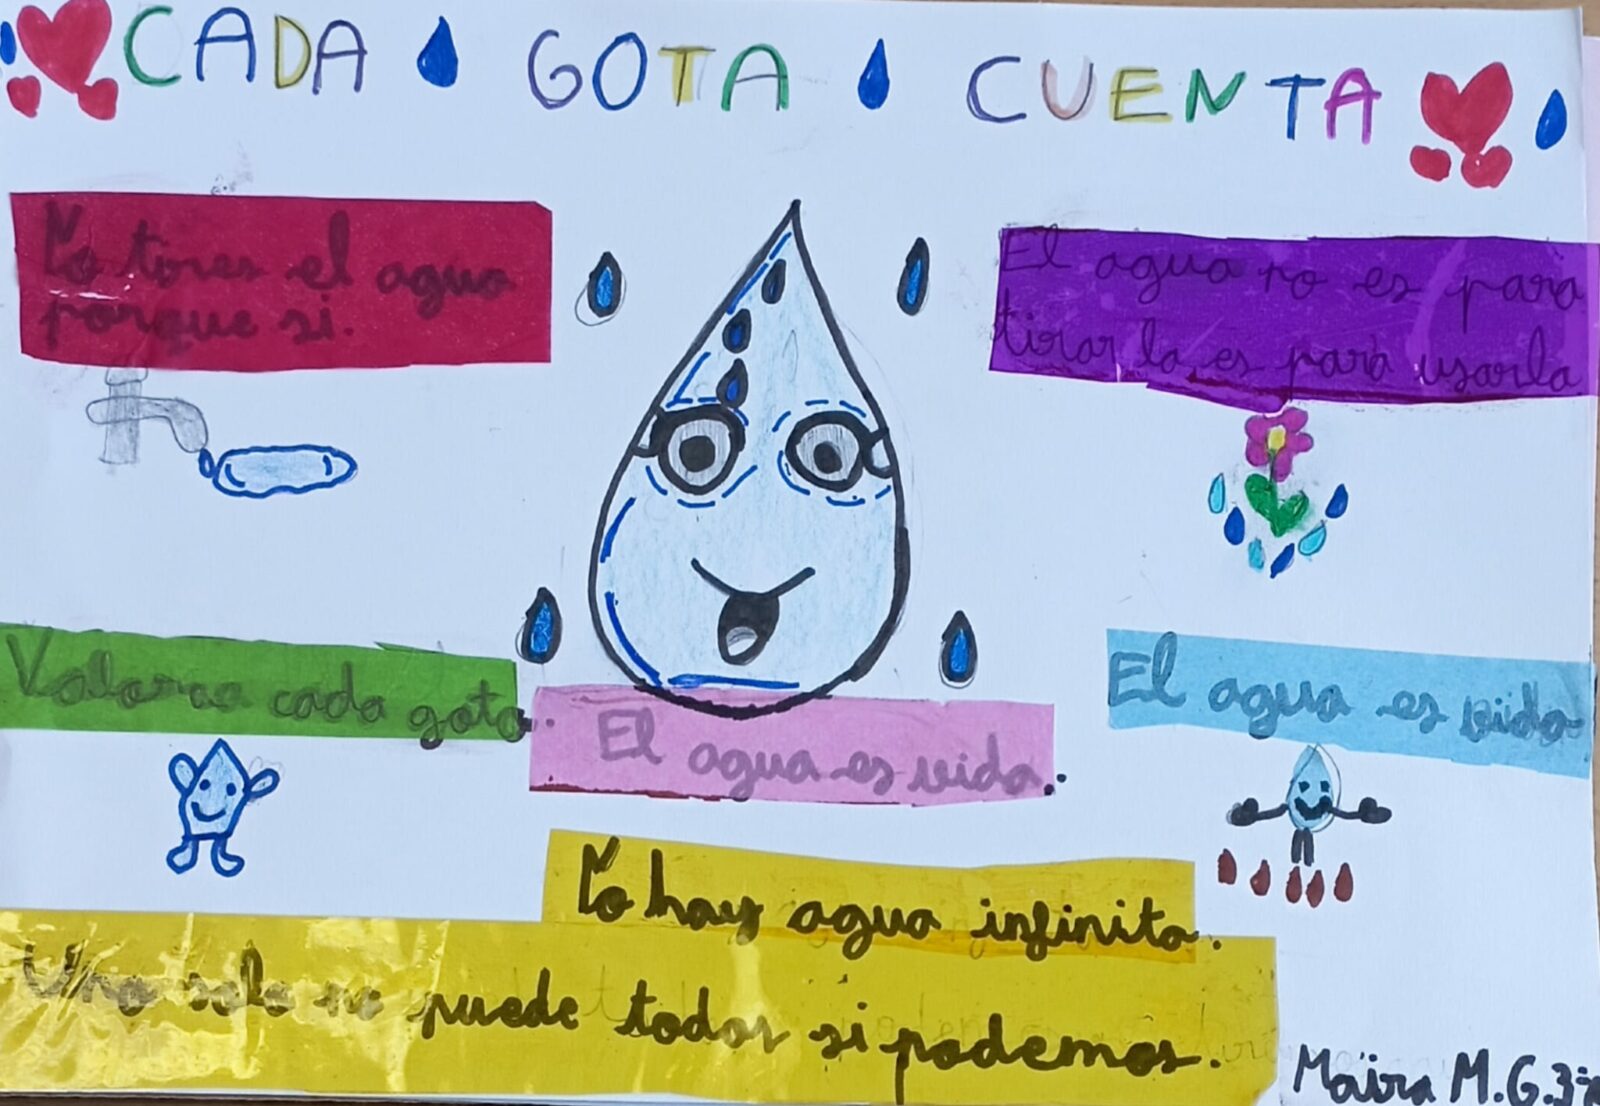 CADA GOTA CUENTA
No tires el agua
porque si.
El agua no es para
tirarla es para usarla
Valora cada gota.
El agua es vida.
El agua es vida
No hay agua infinita.
Uno solo no puede todos si podemos.
Maira M.G. 3º